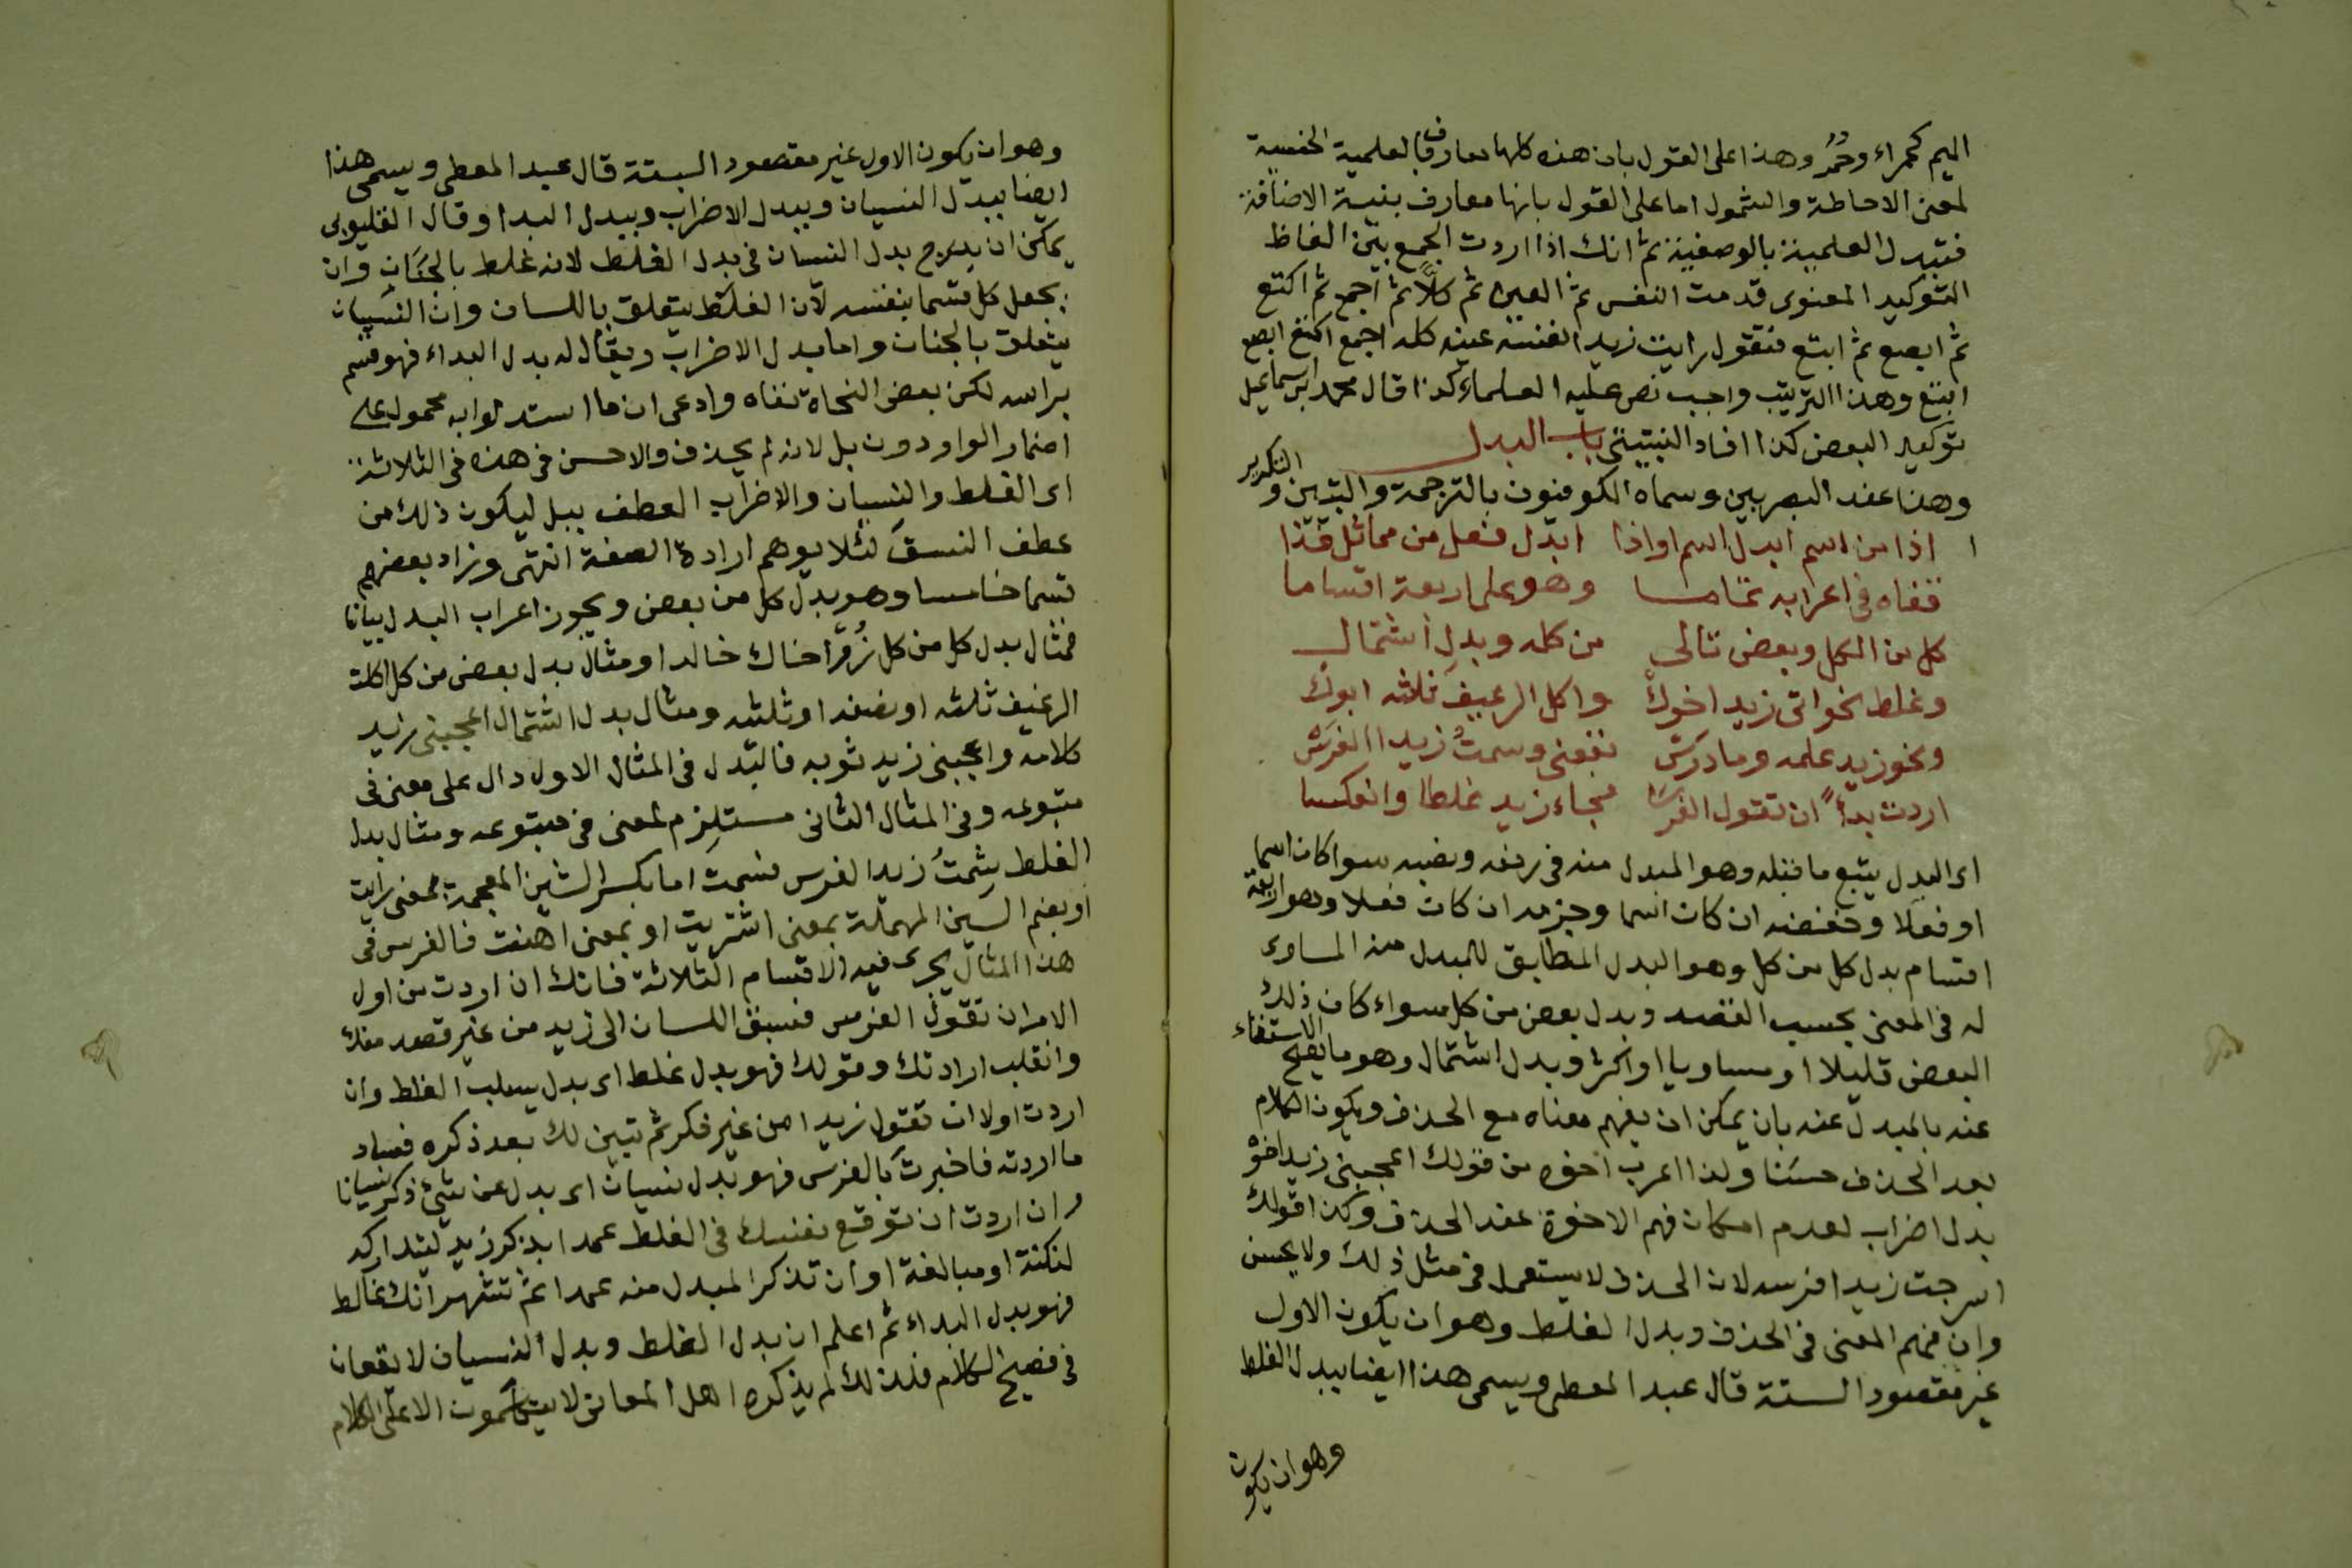 الميم كحمراء وحُمُر وهذا على القول بان هذه كلها معارف بالعلمية الجنسية
لمعنى الاحاطة والشمول اما على القول بانها معارف بنية الاضافة
فتبدل العلمية بالوصفية ثم انك اذا اردت الجمع بين الفاظ
التوكيد المعنوى قدمت النفس ثم العين ثم كلاً ثم اجمع ثم اكتع
ثم ابصع ثم ابتع فتقول رايت زيدا نفسه عينه كله اجمع اكتع ابصع
ابتع وهذا الترتيب واجب نص عليه العلماء كذا قال محمد ابن اسماعيل
توكيد البعض كذا افاد النبتيتى باب البدل
وهذا عند البصريين وسماه الكوفيون بالترجمة والتبين والتكرير
اذا من اسم ابدل اسم او اذا ابدل فعل من مماثل فذا
قفاه فى اعرابه تمامسا وهو على اربعة اقساما
كل من الكل وبعض تالى من كله وبدل اشتمال
وغلط نحو اتى زيد اخوك واكل الرغيف ثلثه ابوك
ونحو زيد علمه وما درس نفعنى وسمتُ زيدا الفرس
اردت بدأً ان تقول الفرسا فجاء زيد غلطا وانعكسا
اى البدل يتبع ما قبله وهو المبدل منه فى رفعه ونصبه سوا كان اسما
او فعلا وخفضه ان كان اسما وجزمه ان كان فعلا وهو اربعة
اقسام بدل كل من كل وهو البدل المطابق للمبدل منه المساوى
له فى المعنى بحسب القصد وبدل بعض من كل سواء كان ذلك
البعض قليلا او مساويا او اكثر وبدل اشتمال وهو ما يصح الاستغناء
عنه بالمبدل عنه بان يمكن ان يفهم معناه مع الحذف ويكون الكلام
بعد الحذف حسنا ولذا اعرب اخوه من قولك اعجبنى زيد اخوه
بدل اضراب لعدم امكان فهم الاخوة عند الحذف وكذا قولك
اسرجت زيدا فرسه لان الحذف لا يستعمل فى مثل ذلك ولا يحسن
وان فهم المعنى فى الحذف وبدل الغلط وهو ان يكون الاول
غير مقصود البتة قال عبد المعطى ويسمى هذا ايضا ببدل الغلط
وهو ان يكون
وهو ان يكون الاول غير مقصود البتة قال عبد المعطى ويسمى هذا
ايضا ببدل النسيان وببدل الاضراب وببدل البدا وقال القليوبى
يمكن ان يدرج بدل النسيان فى بدل الغلط لانه غلط بالجَنَان وان
يجعل كل قسما بنفسه لان الغلط يتعلق باللسان وان النسيان
يتعلق بالجنان واما بدل الاضراب ويقال له بدل البداء فهو قسم
براسه لكن بعض النحاة نفاه وادعى ان ما استدلوا به محمول على
اضمار الواو دون بل لانه لم يحذف والاحسن فى هذه فى الثلاثة
اى الغلط والنسيان والاضراب العطف ببل ليكون ذلك من
عطف النسق لئلا يوهم ارادة الصفة انتهى وزاد بعضهم
قسما خامسا وهو بدل كل من بعض ويجوز اعراب البدل بيانا
فمثال بدل كل من كل زُرْ اخاك خالدا ومثال بدل بعض من كل اكلت
الرغيف ثلثه او نصفه او ثلثيه ومثال بدل اشتمال اعجبنى زيد
كلامه واعجبنى زيد ثوبه فالبدل فى المثال الاول دال على معنى فى
متبوعه وفى المثال الثانى مستلزم لمعنى فى متبوعه ومثال بدل
الغلط شِمتُ زيدا الفرس فشمت اما بكسر الشين المعجمة بمعنى رايت
او بضم السين المهملة بمعنى اشتريت او بمعنى اهنت فالفرس فى
هذا المثال يجرى فيه الاقسام الثلاثة فانك ان اردت من اول
الامر ان تقول الفرس فسبق اللسان الى زيد من غير قصد منك
وانقلب ارادتك وقولك فهو بدل غلط اى بدل بسبب الغلط وان
اردت اولا ان تقول زيدا من غير فكر ثم تبين لك بعد ذكره فساد
ما اردته فاخبرت بالفرس فهو بدل نسيان اى بدل عن شئ ذكر نسيانا
وان اردت ان توقع نفسك فى الغلط عمدا بذكر زيد ليتداركه
لنكتة او مبالغة او ان تذكر المبدل منه عمدا ثم تشهر انك غالط
فهو بدل البداء ثم اعلم ان بدل الغلط وبدل النسيان لا يقعان
فى فصيح الكلام فلذلك لم يذكره اهل المعانى لا يتكلمون الا على الكلام